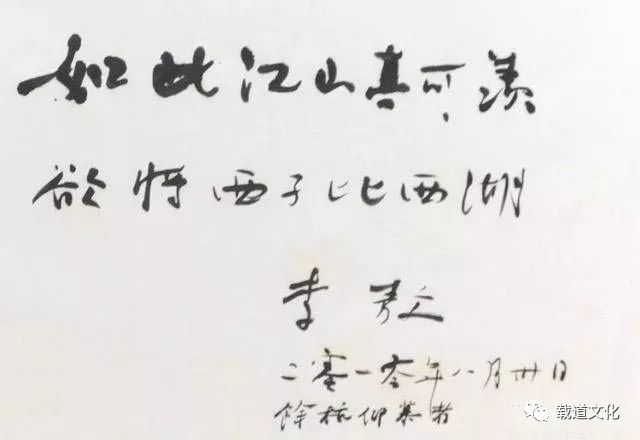 如此江山真可羡
欲将西子比西湖
李敖
二零一零年八月卅日
馀杭仰慕者
载道文化